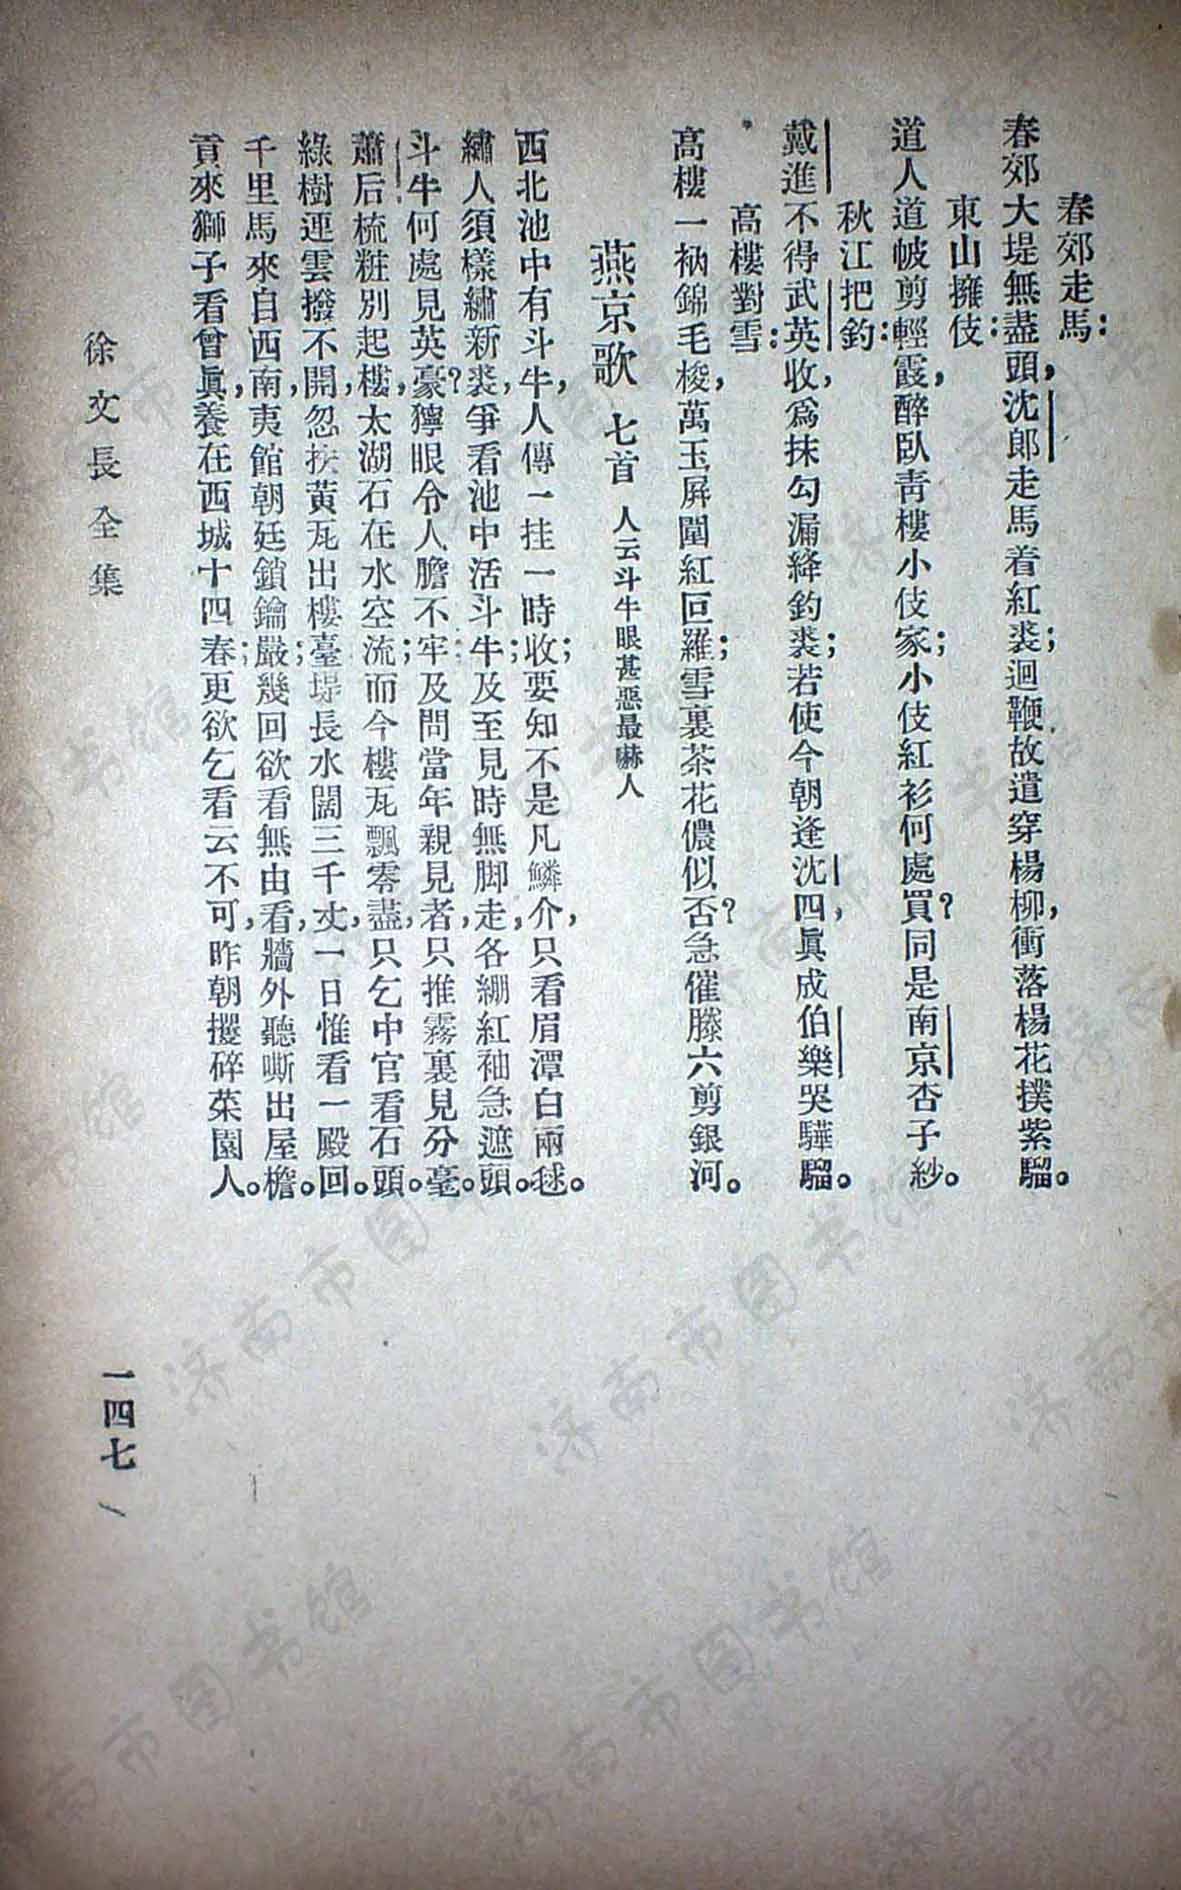 春郊走馬：
春郊大堤無盡頭，沈郎走馬着紅裘；迴鞭故遣穿楊柳，衝落楊花撲紫騮。
東山擁伎：
道人道帔剪輕霞，醉臥靑樓小伎家；小伎紅衫何處買？同是南京杏子紗。
秋江把釣：
戴進不得武英收，爲抹勾漏絳釣裘；若使今朝逢沈四，眞成伯樂哭驊騮。
高樓對雪：
高樓一衲錦毛梭，萬玉屏圍紅叵羅；雪裏茶花儂似否？急催滕六剪銀河。
燕京歌 七首 人云斗牛眼甚惡最嚇人
西北池中有斗牛，人傳一挂一時收；要知不是凡鱗介，只看眉潭白兩毬。
繡人須樣繡新裘，爭看池中活斗牛；及至見時無脚走，各綳紅袖急遮頭。
斗牛何處見英豪？獰眼令人膽不牢；及問當年親見者，只推霧裏見分毫。
蕭后梳粧別起樓，太湖石在水空流；而今樓瓦飄零盡，只乞中官看石頭。
綠樹連雲撥不開，忽扶黃瓦出樓臺；堤長水闊三千丈，一日惟看一殿回。
千里馬來自西南，夷館朝廷鎖鑰嚴；幾回欲看無由看，牆外聽嘶出屋檐。
貢來獅子看曾眞，養在西城十四春；更欲乞看云不可，昨朝攫碎菜園人。
徐文長全集
一四七
济南市图书馆